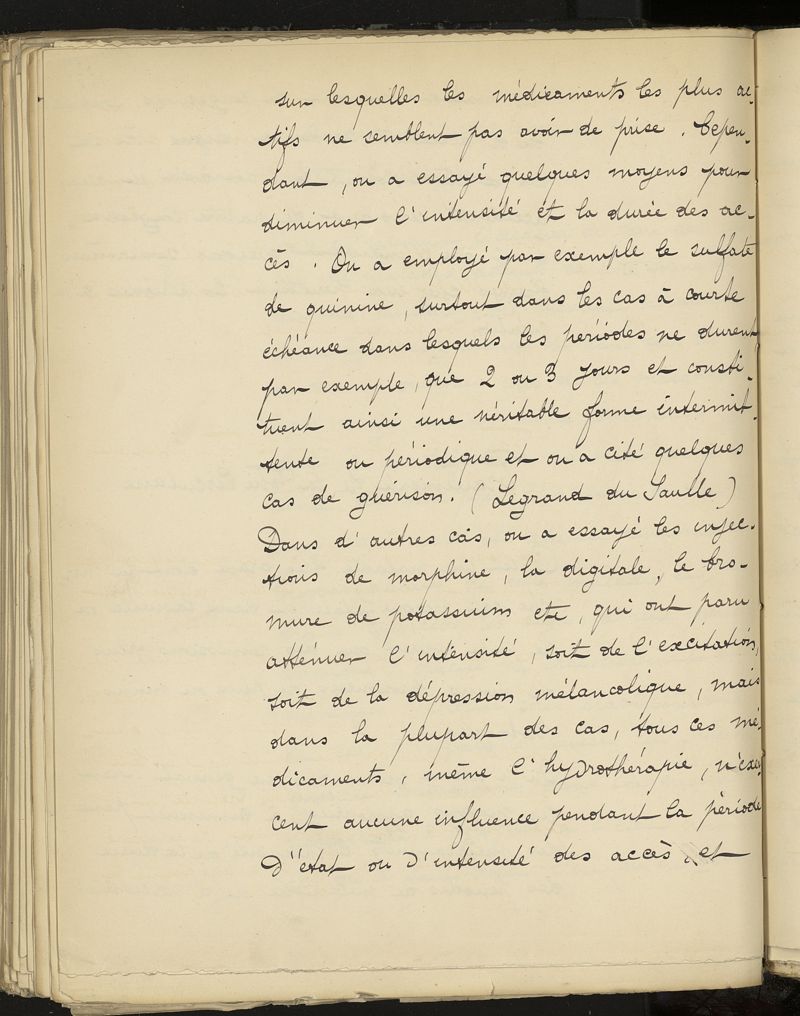 sur lesquelles les médicaments les plus ac-
tifs ne semblent pas avoir de prise. Cepen-
dant, on a essayé quelques moyens pour
diminuer l'intensité et la durée des ac-
cès. On a employé par exemple le sulfate
de quinine, surtout dans les cas à courte
échéance dans lesquels les périodes ne durent,
par exemple, que 2 ou 3 jours et consti-
tuent ainsi une véritable forme intermit-
tente ou périodique et on a cité quelques
cas de guérison. (Legrand du Saulle)
Dans d'autres cas, on a essayé les injec-
tions de morphine, la digitale, le bro-
mure de potassium etc, qui ont paru
atténuer l'intensité, soit de l'excitation,
soit de la dépression mélancolique, mais
dans la plupart des cas, tous ces mé-
dicaments, même l'hydrothérapie, n'exer-
cent aucune influence pendant la période
d'état ou d'intensité des accès, et